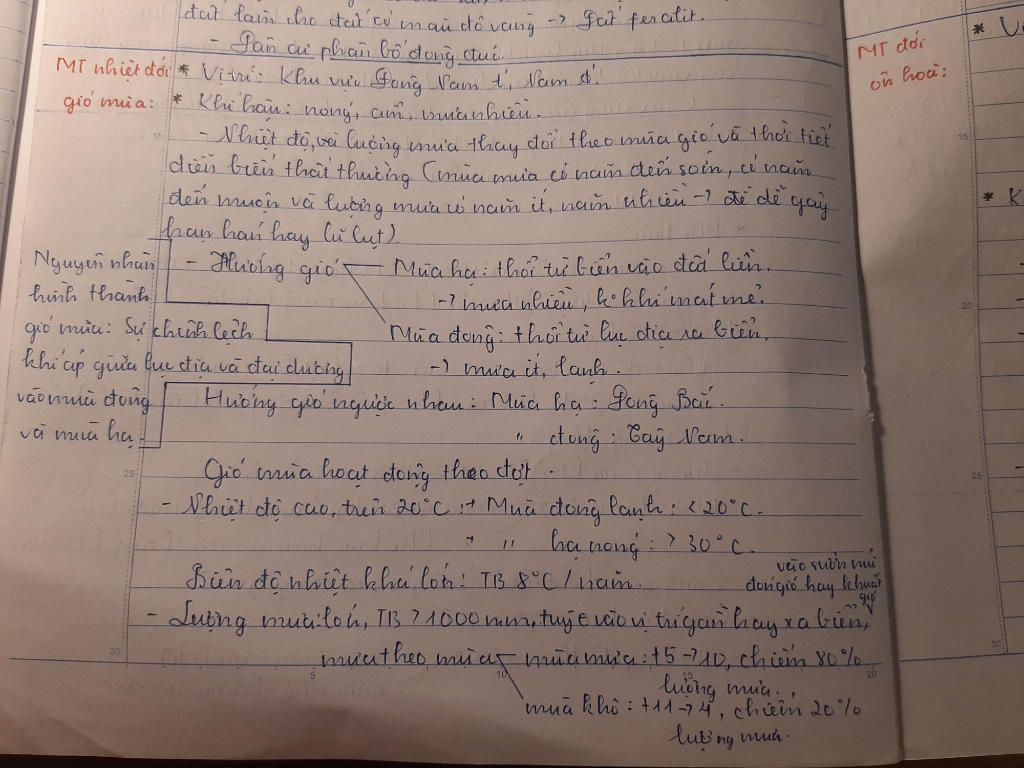 đất làm cho đất có màu đỏ vàng → Đất feralit.
- Dân cư phân bố đông đúc.
MT nhiệt đới gió mùa:
* Vị trí: Khu vực Đông Nam Á, Nam Á.
* Khí hậu: nóng, ẩm, mưa nhiều.
- Nhiệt độ, và lượng mưa thay đổi theo mùa gió và thời tiết
diễn biến thất thường (mùa mưa có năm đến sớm, có năm
đến muộn và lượng mưa có năm ít, năm nhiều → để dễ gây
hạn hán hay lũ lụt).
- Hướng gió
Mùa hạ: thổi từ biển vào đất liền.
→ mưa nhiều, k° khí mát mẻ.
Mùa đông: thổi từ lục địa ra biển.
→ mưa ít, lạnh.
Nguyên nhân
hình thành
gió mùa: Sự chênh lệch
khí áp giữa lục địa và đại dương
vào mùa đông
và mùa hạ.
Hướng gió ngược nhau: Mùa hạ: Đông Bắc.
" đông: Tây Nam.
Gió mùa hoạt động theo đợt.
- Nhiệt độ cao, trên 20°C: + Mùa đông lạnh: < 20°C.
+ " hạ nóng: > 30°C.
Biên độ nhiệt khá lớn: TB 8°C / năm.
- Lượng mưa: lớn, TB > 1000 mm, tuỳ vào vị trí gần hay xa biển,
vào sườn núi
đón gió hay khuất
gió
mưa theo mùa
mùa mưa: t5 → 10, chiếm 80%
lượng mưa.
mùa khô: t11 → 4, chiếm 20%
lượng mưa.
MT đới
ôn hoà:
* V
* K
15
20
25
30
5
10
15
20
15
20
25
30